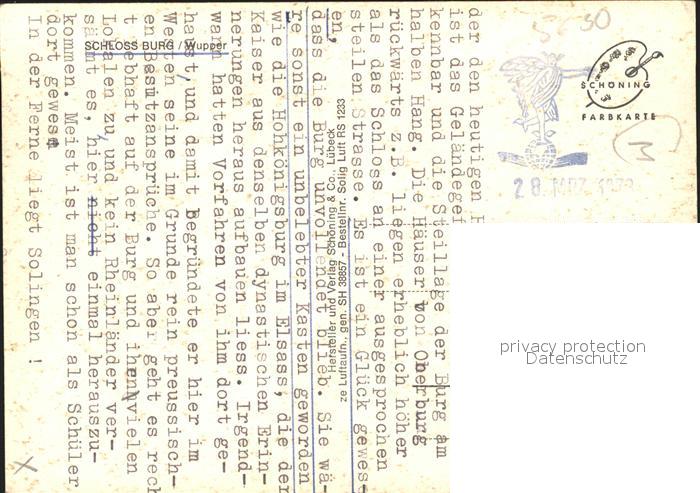 SCHLOSS BURG / Wupper
5630
SCHÖNING
FARBKARTE
28. MRZ. 1973
3
der den heutigen
ist das Geländegef
kennbar und die Steillage der Burg am
halben Hang. Die Häuser von Oberburg
rückwärts z.B. liegen erheblich höher
als das Schloss an einer ausgesprochen
steilen Strasse. Es ist ein Glück gewes-
en,
dass die Burg unvollendet blieb. Sie wä-
re sonst ein unbelebter Kasten geworden
wie die Hohkönigsburg im Elsass, die der
Kaiser aus denselben dynastischen Erin-
nerungen heraus aufbauen liess. Irgend-
wann hatten Vorfahren von ihm dort ge-
haust, und damit begründete er hier im
Westen seine im Grunde rein preussisch-
en Besitzansprüche. So aber geht es rech
t lebhaft auf der Burg und ihren vielen
Lokalen zu, und kein Rheinländer ver-
säumt es, hier nicht einmal herauszu-
kommen. Meist ist man schon als Schüler
dort gewest
In der Ferne liegt Solingen !
Hersteller und Verlag Schöning & Co., Lübeck
ze Luftaufn., gen. SH 38857 - Bestellnr. Solig Luft RS 1233
privacy protection
Datenschutz